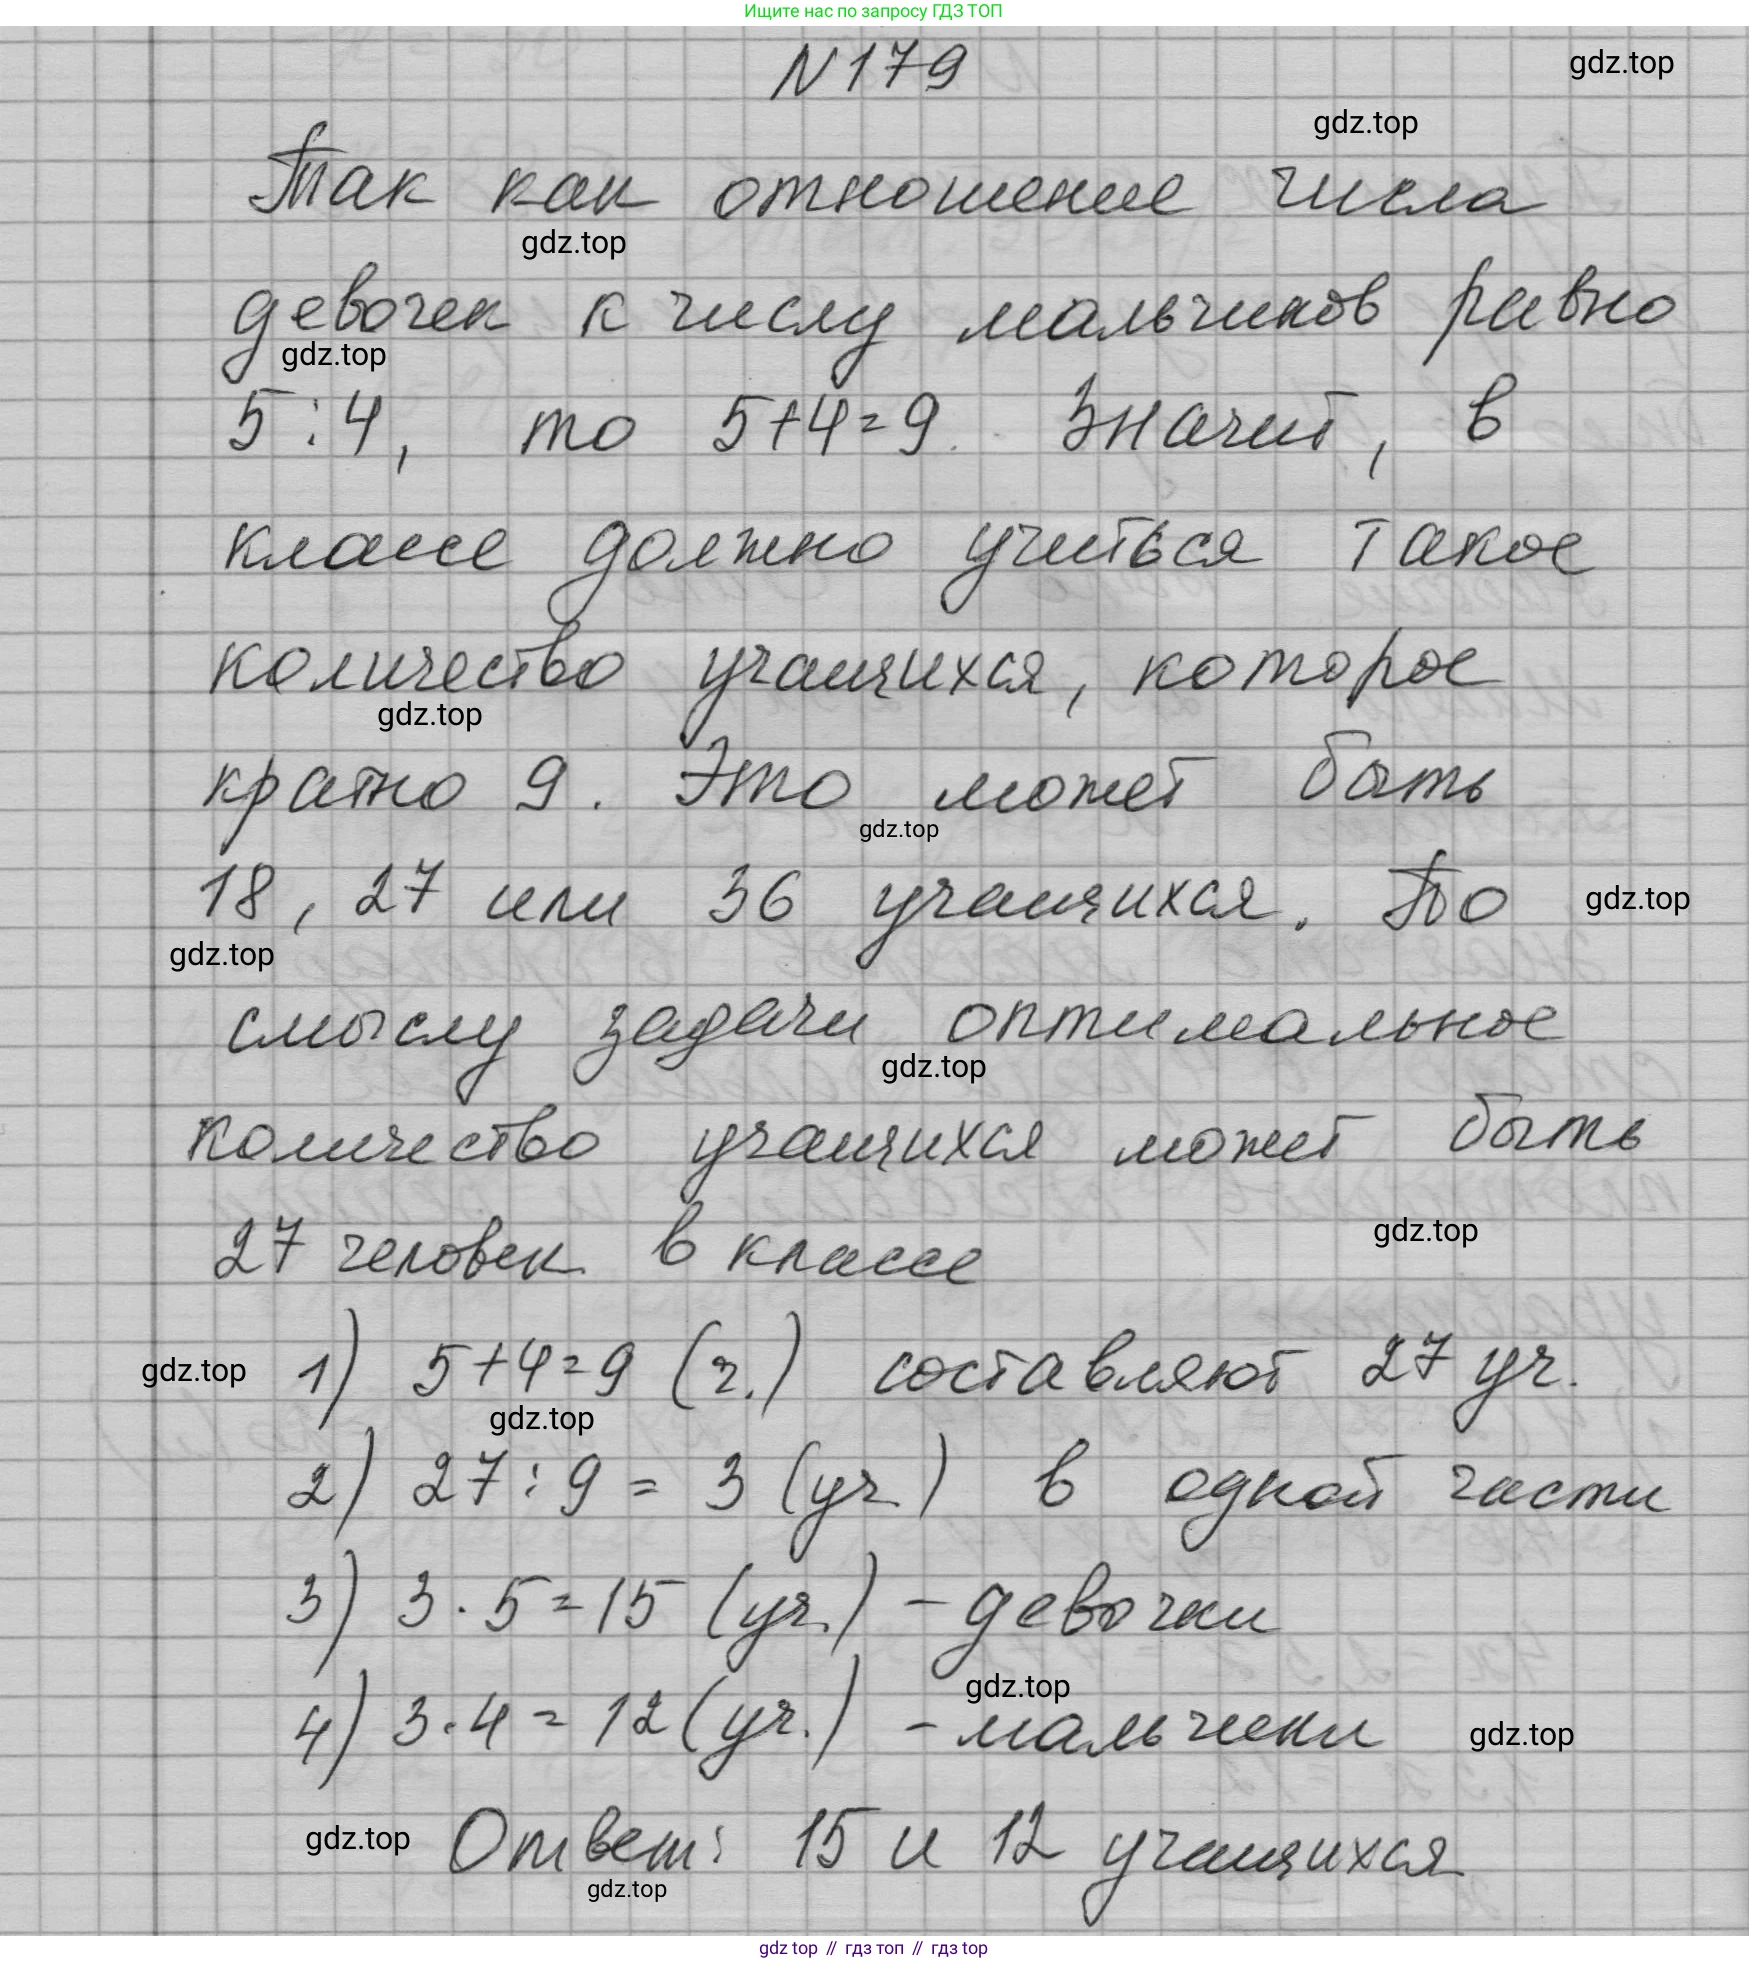 Ищите нас по запросу ГДЗ ТОП
N 179
gdz.top
gdz.top
Так как отношение числа
gdz.top
девочек к числу мальчиков равно
gdz.top
5:4, то 5+4=9. Значит, в
классе должно учиться такое
количество учащихся, которое
gdz.top
кратно 9. Это может быть
gdz.top
18, 27 или 36 учащихся. По
gdz.top
gdz.top
смыслу задачи оптимальное
gdz.top
количество учащихся может быть
gdz.top
27 человек в классе
gdz.top
1) 5+4=9 (ч.) составляют 27 уч.
gdz.top
2) 27:9=3 (уч.) в одной части
3) 3·5=15 (уч.) - девочки
gdz.top
4) 3·4=12 (уч.) - мальчики
gdz.top
gdz.top
Ответ: 15 и 12 учащихся
gdz.top
gdz top // гдз топ // гдз top